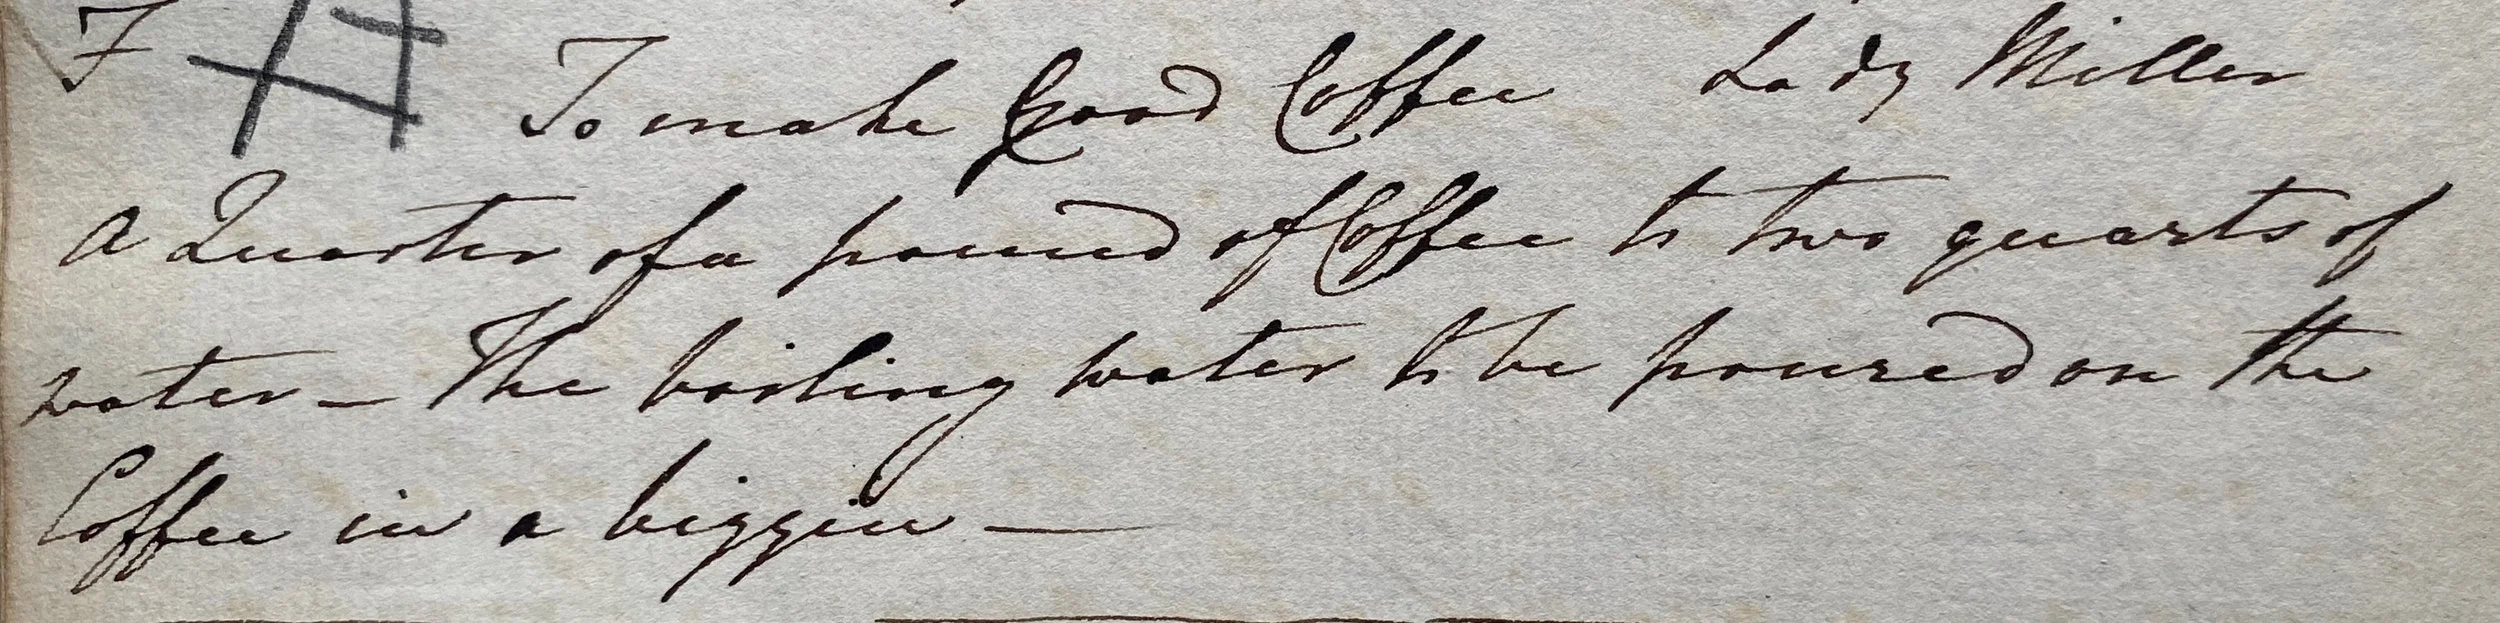 F # To make Good Coffee Lady Miller
A Quarter of a pound of Coffee to two quarts of
water – The boiling water to be poured on the
Coffee in a biggin —